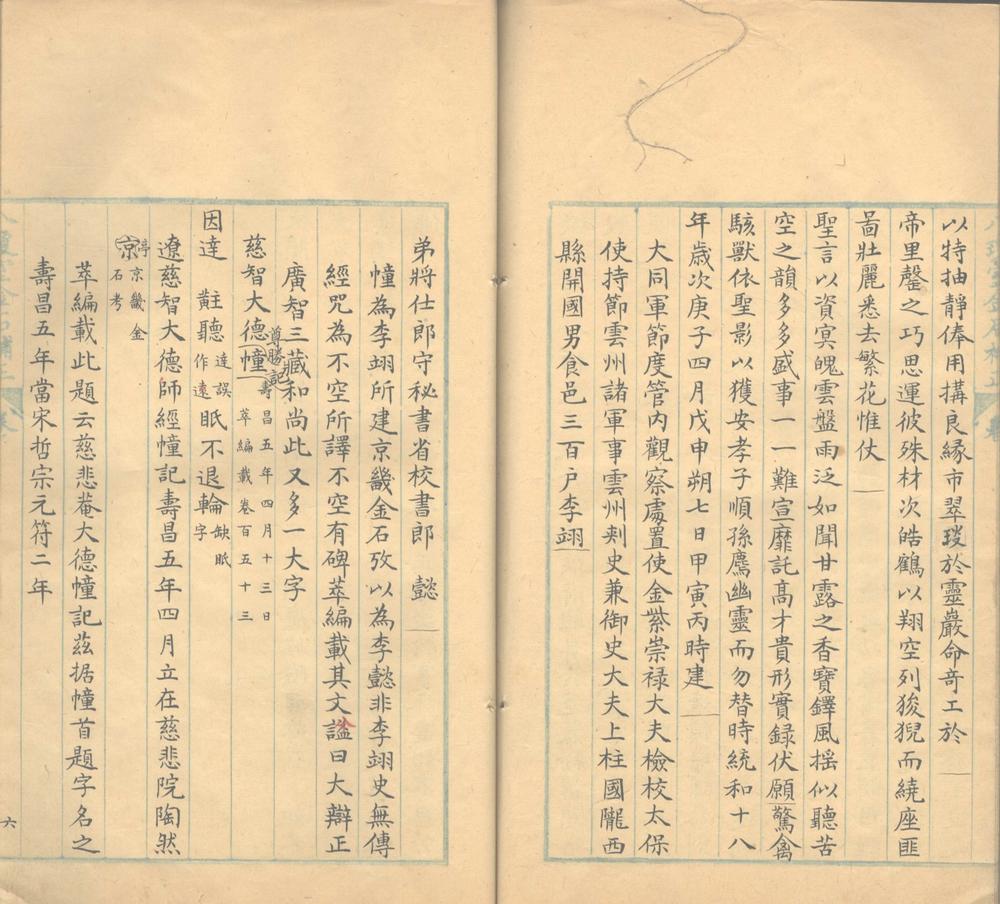 以特抽靜俸用搆良緣市翠琰於靈巖命奇工於
帝里罄之巧思運彼殊材次皓鶴以翔空列狻猊而繞座匪
啚壯麗悉去繁花惟仗
聖言以資冥魄雲盤雨泛如聞甘露之香寶鐸風揺似聽苦
空之韻多多盛事一一難宣靡託髙才貴形實録伏願驚禽
駭獸依聖影以獲安孝子順孫廌幽靈而勿替時統和十八
年歲次庚子四月戊申朔七日甲寅丙時建
大同軍節度管内觀察處置使金紫崇禄大夫檢校太保
使持節雲州諸軍事雲州刾史兼御史大夫上柱國隴西
縣開國男食邑三百户李翊
弟將仕郎守秘書省校書郎 懿
幢為李翊所建京畿金石攷以為李懿非李翊史無傳
經咒為不空所譯不空有碑萃編載其文諡曰大辯正
廣智三藏和尚此又多一大字
慈智大德幢
尊勝記
壽昌五年四月十三日
萃編載卷百五十三
因達 黈聽
達誤
作遠
眂不退輪
缺眂
字
遼慈智大德師經幢記壽昌五年四月立在慈悲院陶然
亭
京
京畿金
石考
萃編載此題云慈悲菴大德幢記茲据幢首題字名之
壽昌五年當宋哲宗元符二年
六